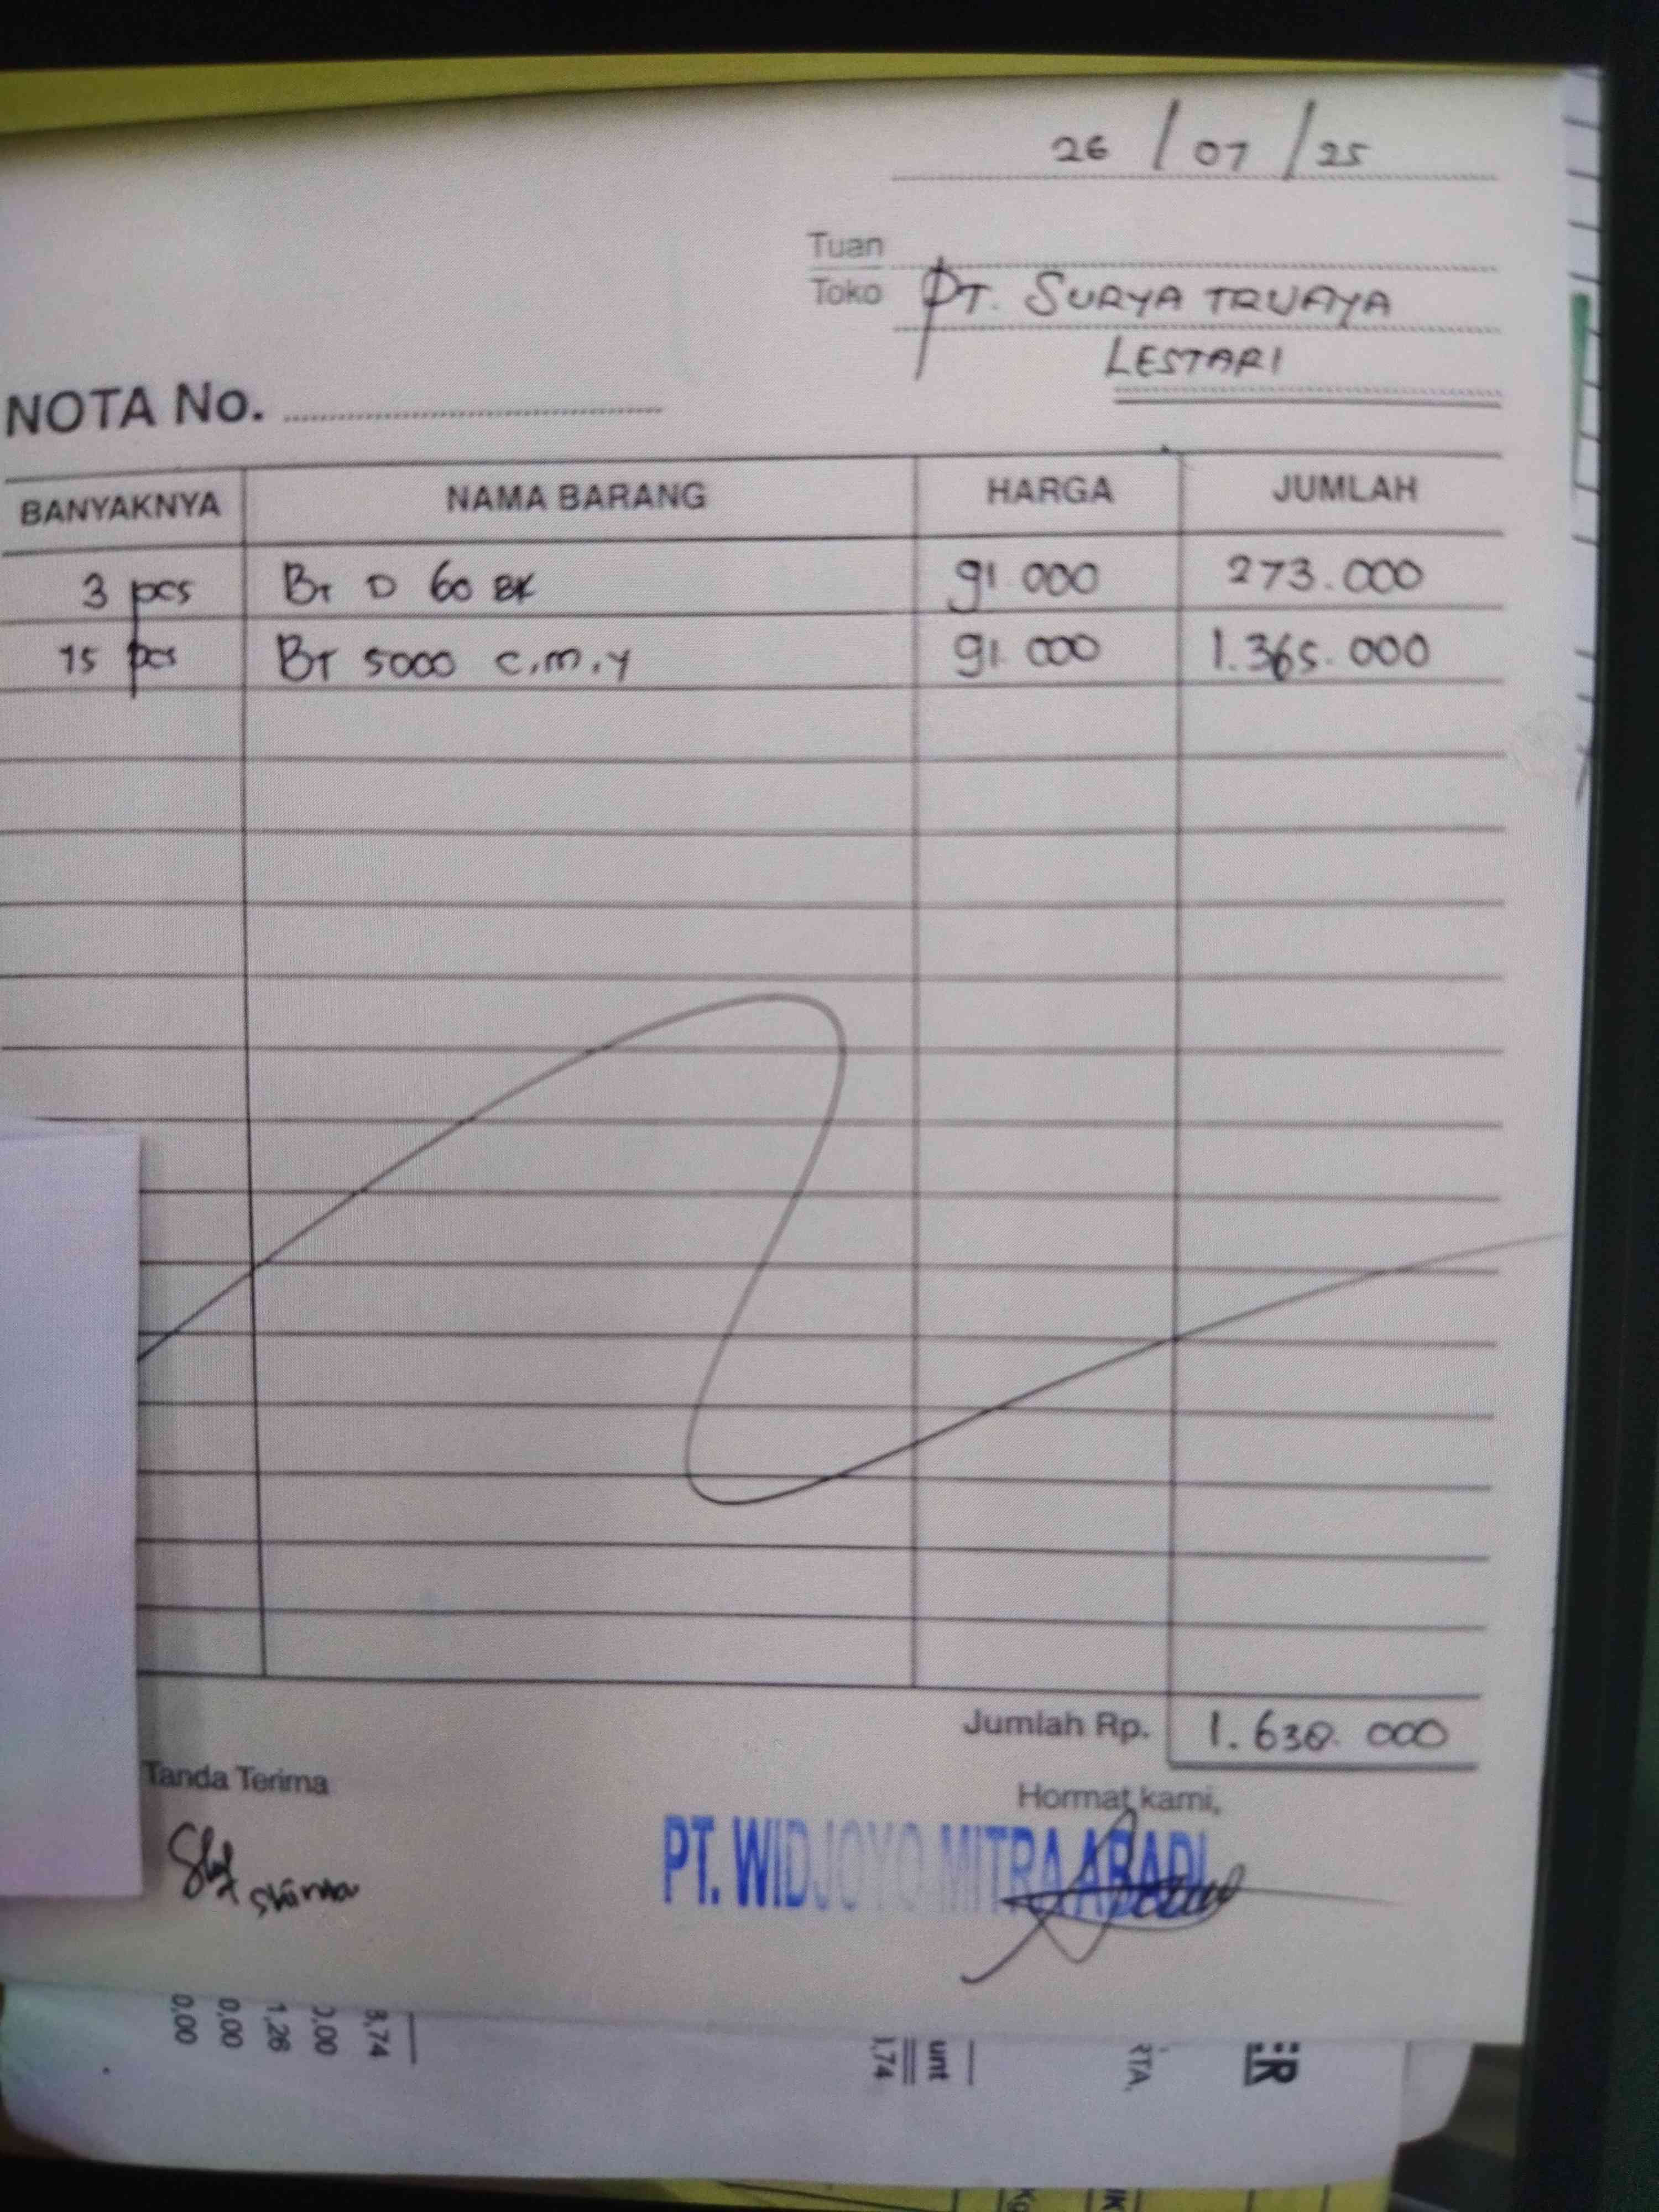 26 / 07 / 25
Tuan
Toko PT. SURYA TRIJAYA
LESTARI
NOTA No.
BANYAKNYA NAMA BARANG HARGA JUMLAH
3 pcs BT D 60 BK 91.000 273.000
15 pcs BT 5000 c.m.y 91.000 1.365.000
Jumlah Rp. 1.638.000
Tanda Terima
Hormat kami,
PT. WIDJOYO MITRA ABADI
8,74
0,00
1,26
0,00
0,00
unt
1,74
RTA,
ER